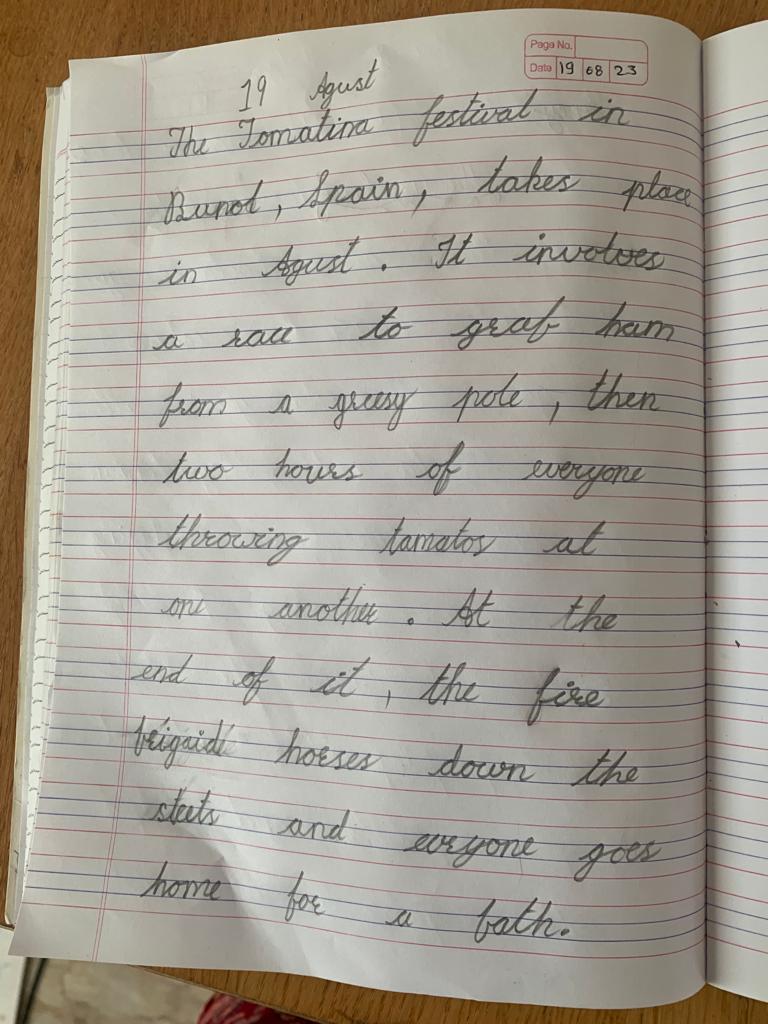 Page No.
Date 19 08 23
19 Agust
The Tomatina festival in
Bunol, Spain, takes place
in Agust. It involves
a race to grab ham
from a greesy pole, then
two hours of everyone
throwing tamatos at
one another. At the
end of it, the fire
brigaide horses down the
steets and evryone goes
home for a bath.